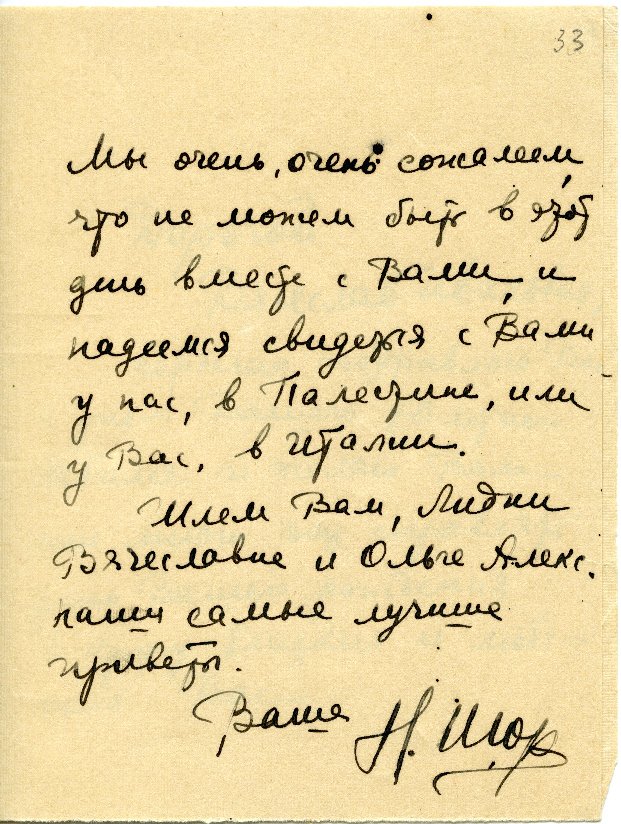 33
Мы очень, очень сожалеем,
что не можем быть в этот
день вместе с Вами, и
надеемся свидеться с Вами
у нас, в Палестине, или
у Вас, в Италии.
Шлем Вам, Лидии
Вячеславне и Ольге Алекс.
наши самые лучшие
приветы.
Ваша Н. Шор